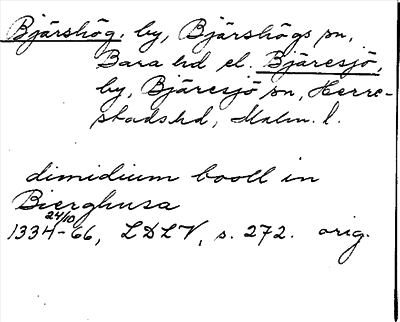 Bjärshög, by, Bjärshögs sn,
Bara hd el. Bjäresjö,
by, Bjäresjö sn, Herre-
stads hd, Malm. l.
dimidium booll in
Bierghusa
24/10
1334-66, LDLV, s. 272. orig.